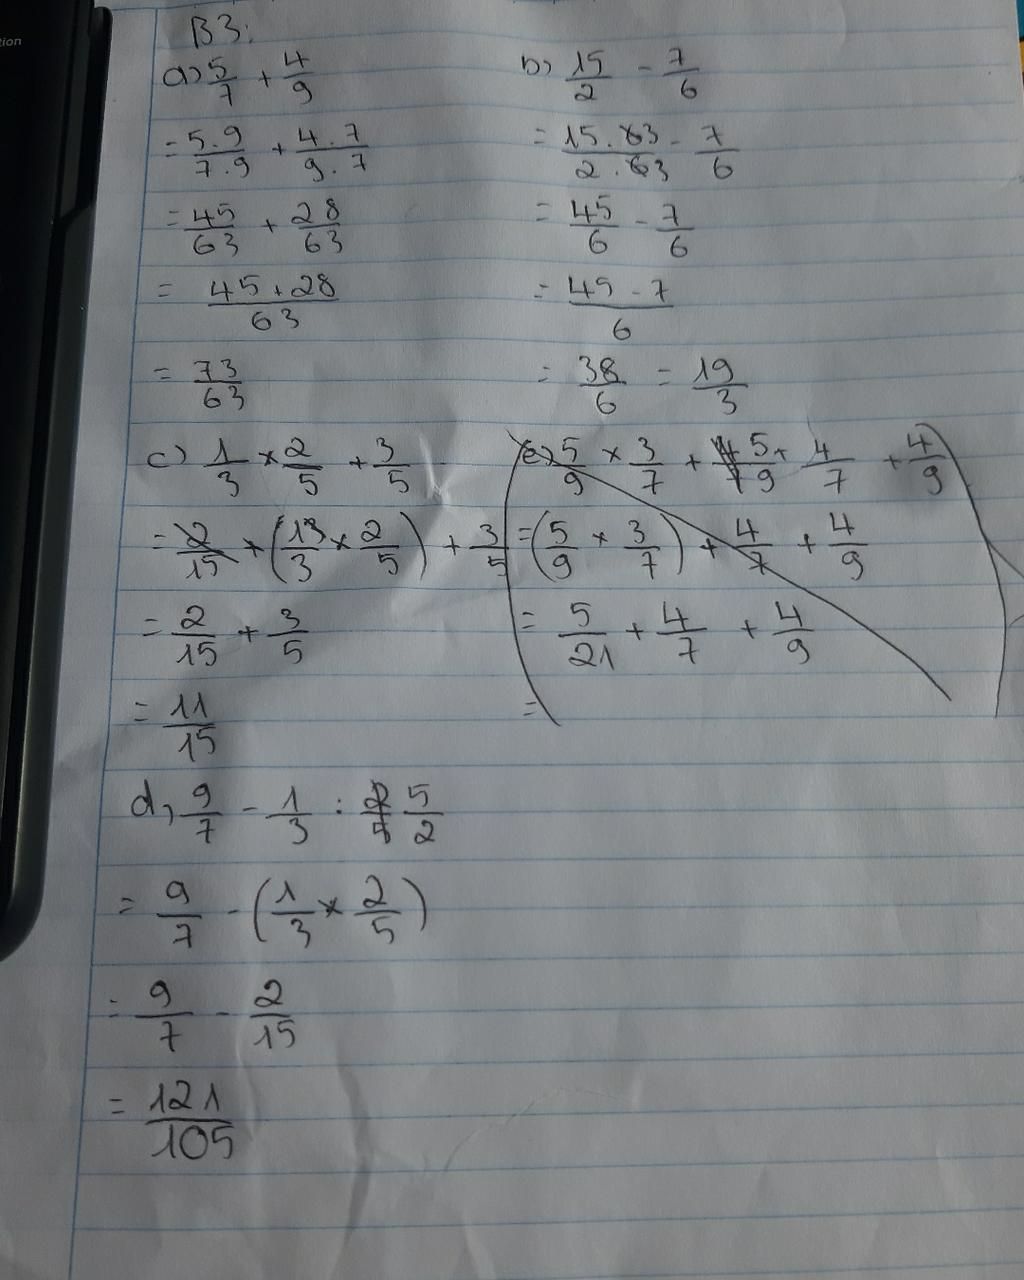 tion
B3:
a) 5/7 + 4/9
= 5.9/7.9 + 4.7/9.7
= 45/63 + 28/63
= 45+28/63
= 73/63
b) 15/2 - 7/6
= 15.3/2.3 - 7/6
= 45/6 - 7/6
= 45-7/6
= 38/6 = 19/3
c) 1/3 × 2/5 + 3/5
= (1/3 × 2/5) + 3/5
= 2/15 + 3/5
= 11/15
e) 5/9 × 3/7 + 5/9 + 4/7 + 4/9
= (5/9 × 3/7) + 4/7 + 4/9
= 5/21 + 4/7 + 4/9
=
d) 9/7 - 1/3 : 5/2
= 9/7 - (1/3 × 2/5)
= 9/7 - 2/15
= 121/105